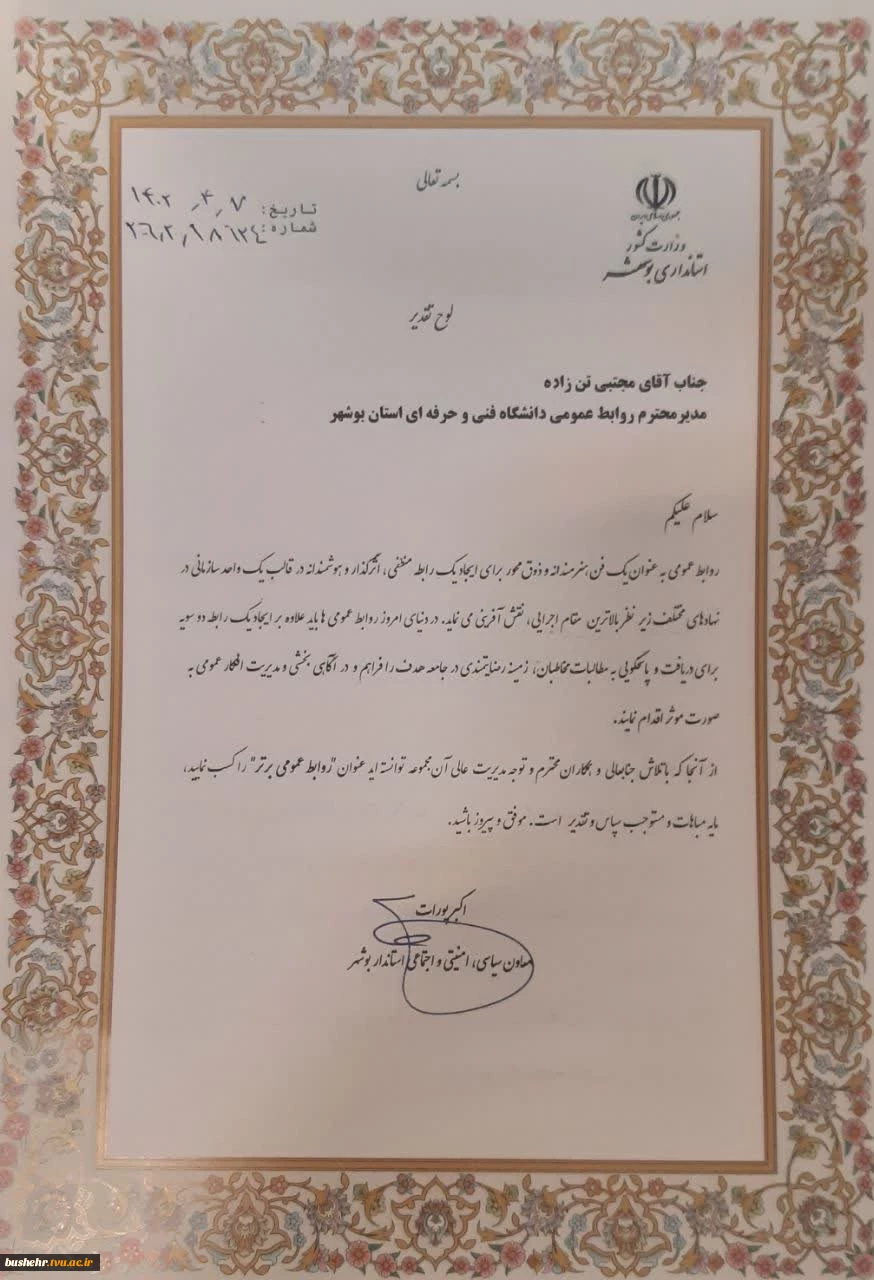 بسمه تعالی
جمهوری اسلامی ایران
وزارت کشور
استانداری بوشهر
تاریخ: ۱۴۰۲/۴/۷
شماره:
لوح تقدیر
جناب آقای مجتبی تن زاده
مدیرمحترم روابط عمومی دانشگاه فنی و حرفه ای استان بوشهر
سلام علیکم
روابط عمومی به عنوان یک فن، هنرمندانه و ذوق محور برای ایجاد یک رابطه منطقی، اثرگذار و هوشمندانه در قالب یک واحد سازمانی در
نهادهای مختلف زیر نظر بالاترین مقام اجرایی، نقش آفرینی می نماید. در دنیای امروز روابط عمومی ها باید علاوه بر ایجاد یک رابطه دو سویه
برای دریافت و پاسخگویی به مطالبات مخاطبان، زمینه رضایتمندی در جامعه هدف را فراهم و در آگاهی بخشی و مدیریت افکار عمومی به
صورت موثر اقدام نمایند.
از آنجا که با تلاش جنابعالی و همکاران محترم و توجه مدیریت عالی آن مجموعه توانسته اید عنوان "روابط عمومی برتر" را کسب نمایید،
مایه مباهات و مستوجب سپاس و تقدیر است. موفق و پیروز باشید.
اکبر پورات
معاون سیاسی، امنیتی و اجتماعی استاندار بوشهر
bushehr.tvu.ac.ir